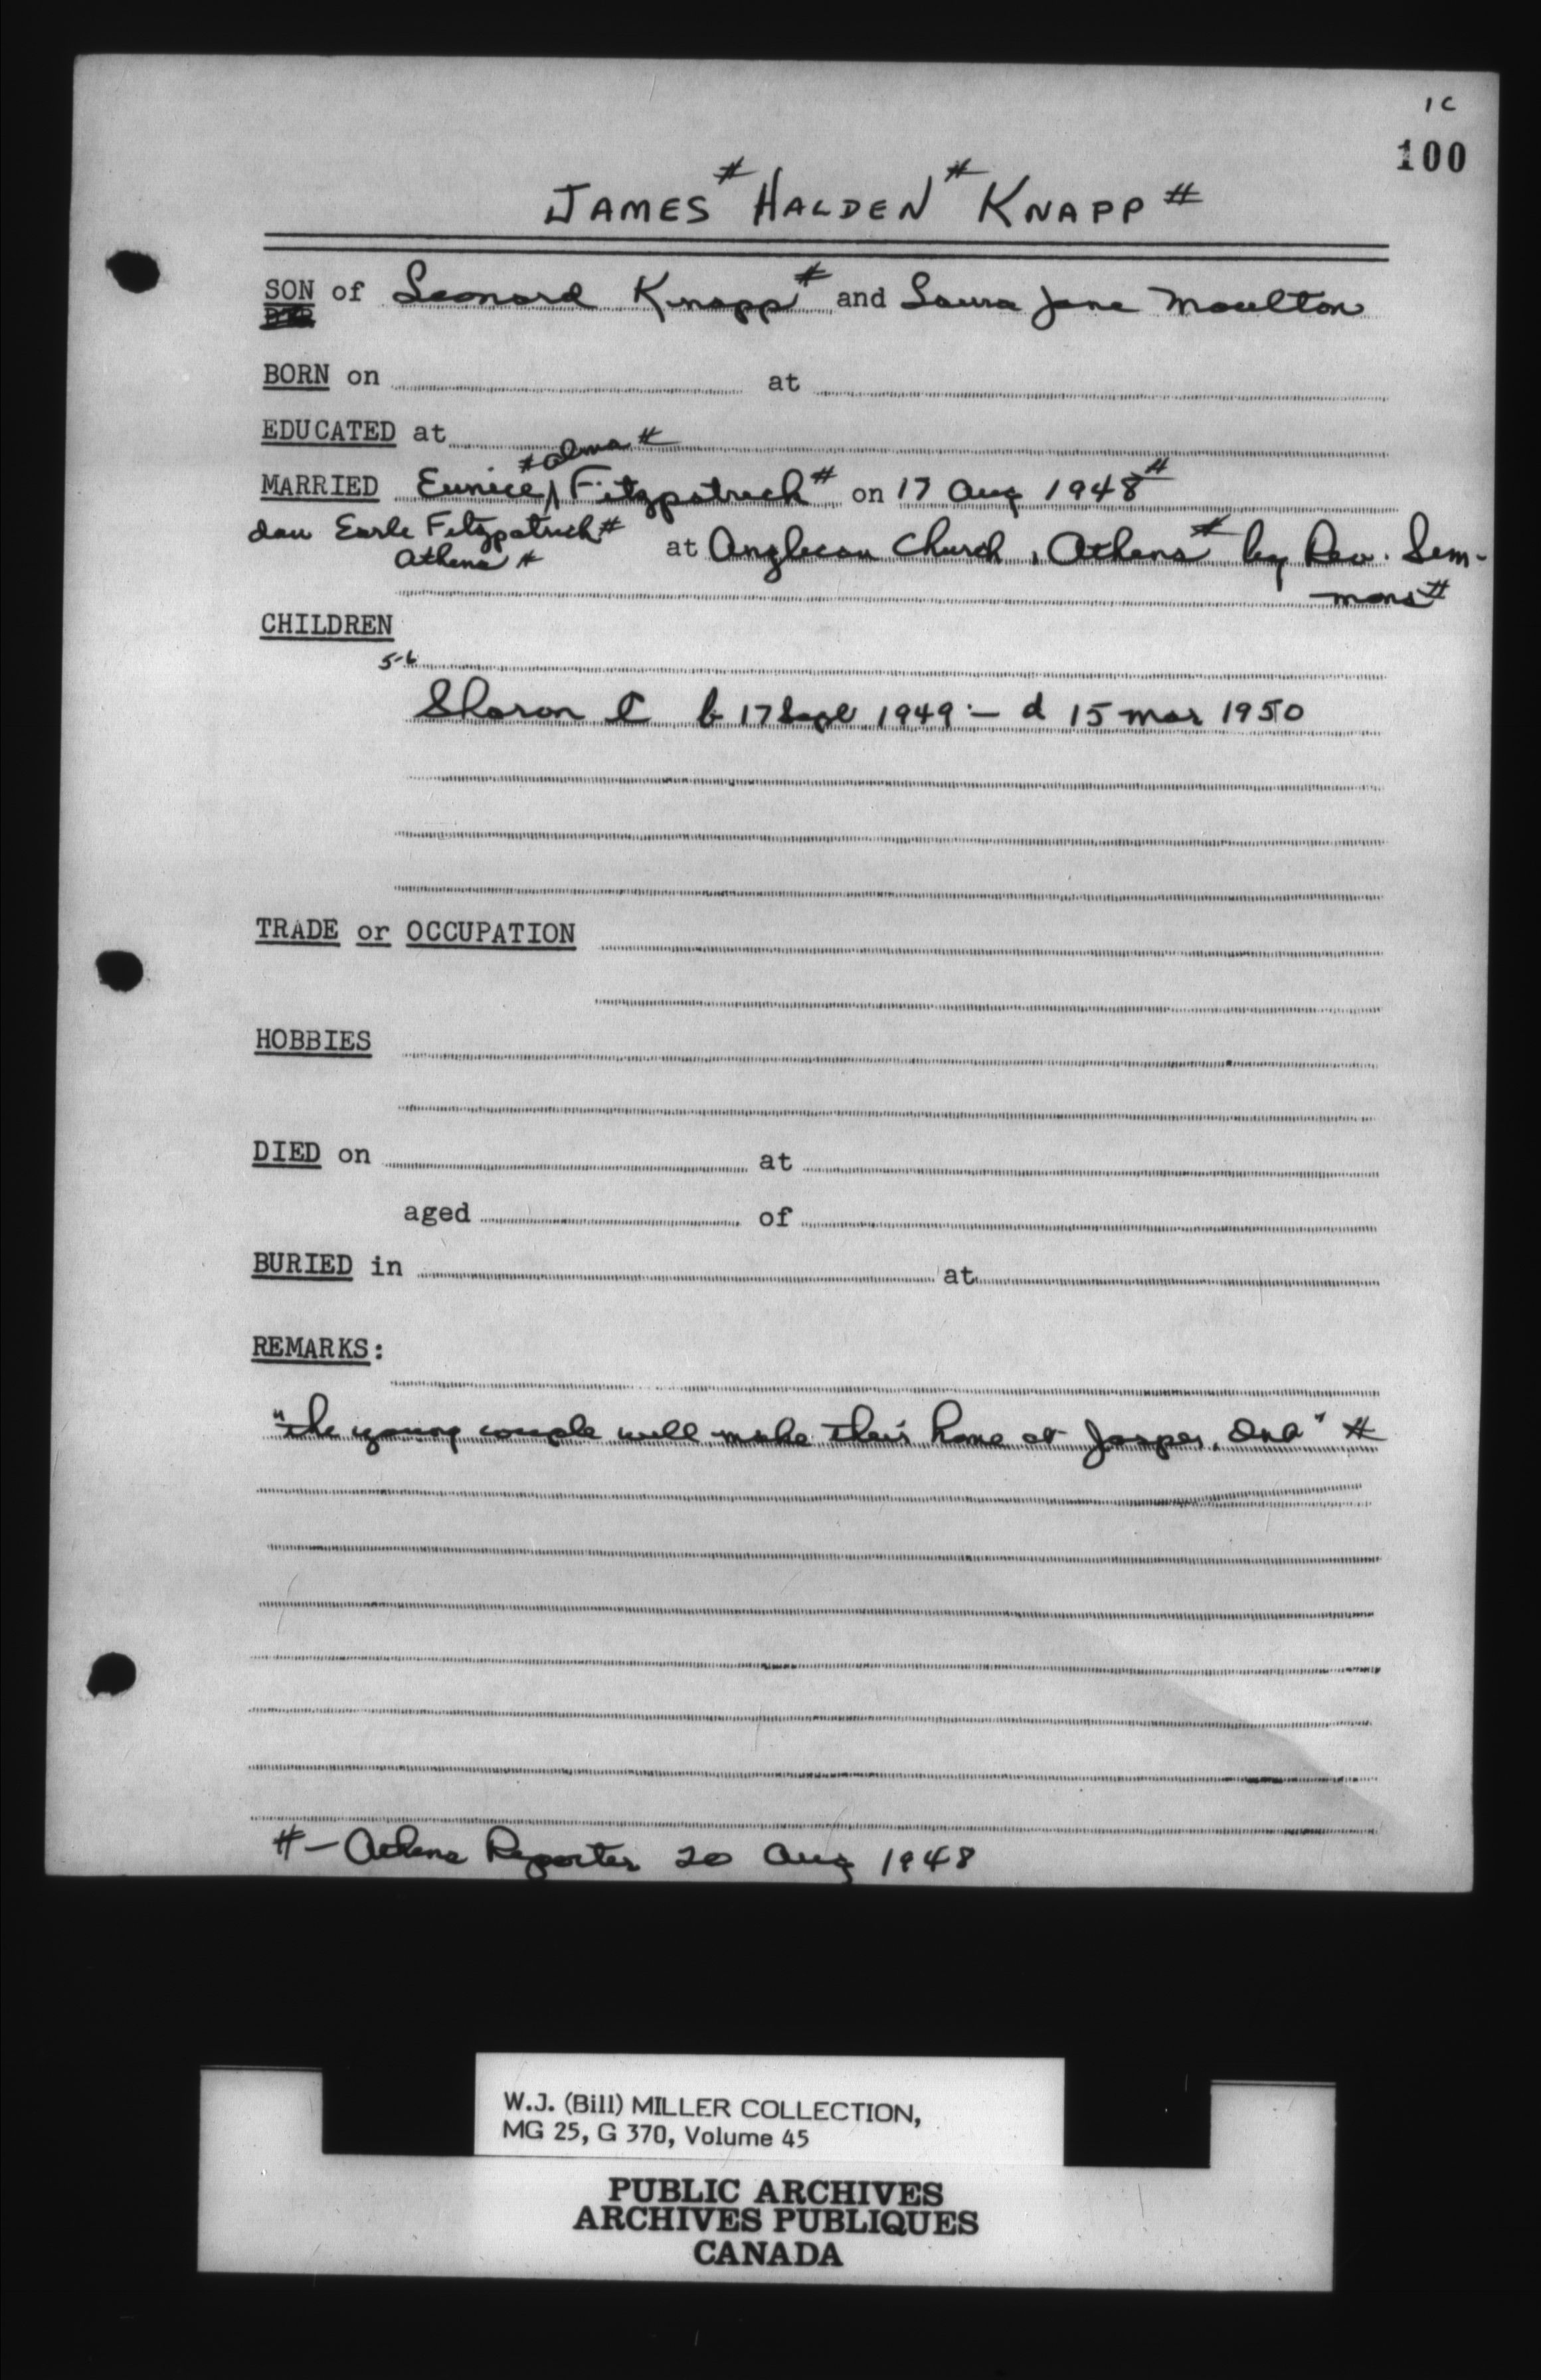 1C
100
JAMES # HALDEN # KNAPP #
SON of Leonard Knapp # and Laura Jane Moulton
BORN on at
EDUCATED at
# Alma #
MARRIED Eunice Fitzpatrick # on 17 Aug 1948 #
dau Earle Fitzpatrick #
Athens #
at Anglican Church, Athens # by Rev. Sem-
mons #
CHILDREN
5-6
Sharon E b 17 Sept 1949 - d 15 Mar 1950
TRADE or OCCUPATION
HOBBIES
DIED on at
aged of
BURIED in at
REMARKS:
"the young couple will make their home at Jasper, Ont" #
# - Athens Reporter 20 Aug 1948
W.J. (Bill) MILLER COLLECTION,
MG 25, G 370, Volume 45
PUBLIC ARCHIVES
ARCHIVES PUBLIQUES
CANADA